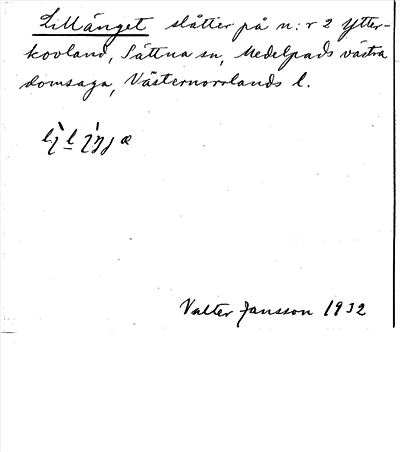 Lillänget slåtter på n:r 2 Ytter-
kovland, Sättna sn, Medelpads västra
domsaga, Västernorrlands l.
Valter Jansson 1932